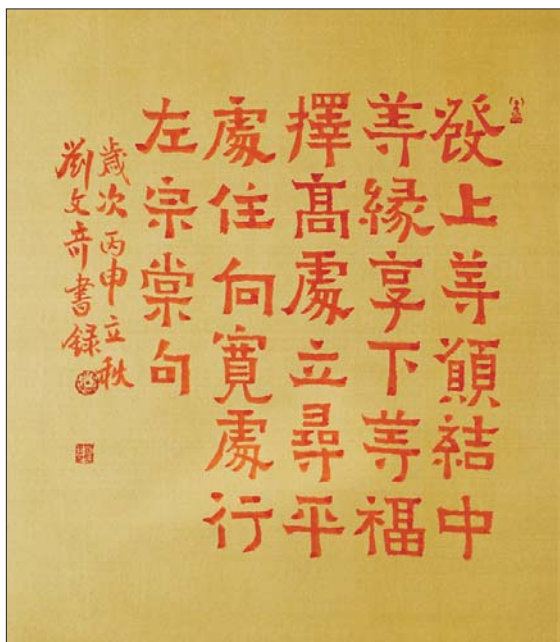 發上等願結中
等緣享下等福
擇高處立尋平
處住向寬處行
左宗棠句
歲次丙申立秋
劉文奇書錄